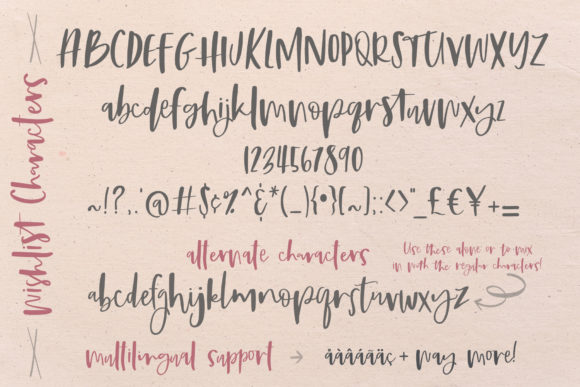 Wishlist Characters
ABCDEFGHIJKLMNOPQRSTUVWXYZ
abcdefghijklmnopqrstuvwxyz
1234567890
~!?,.'@#$¢%^&*(_){•}[~];:<>"_£€¥+=
alternate characters
Use these alone or to mix
in with the regular characters!
abcdefghijklmnopqrstuvwxyz
multilingual support → åàâáãäç + way more!